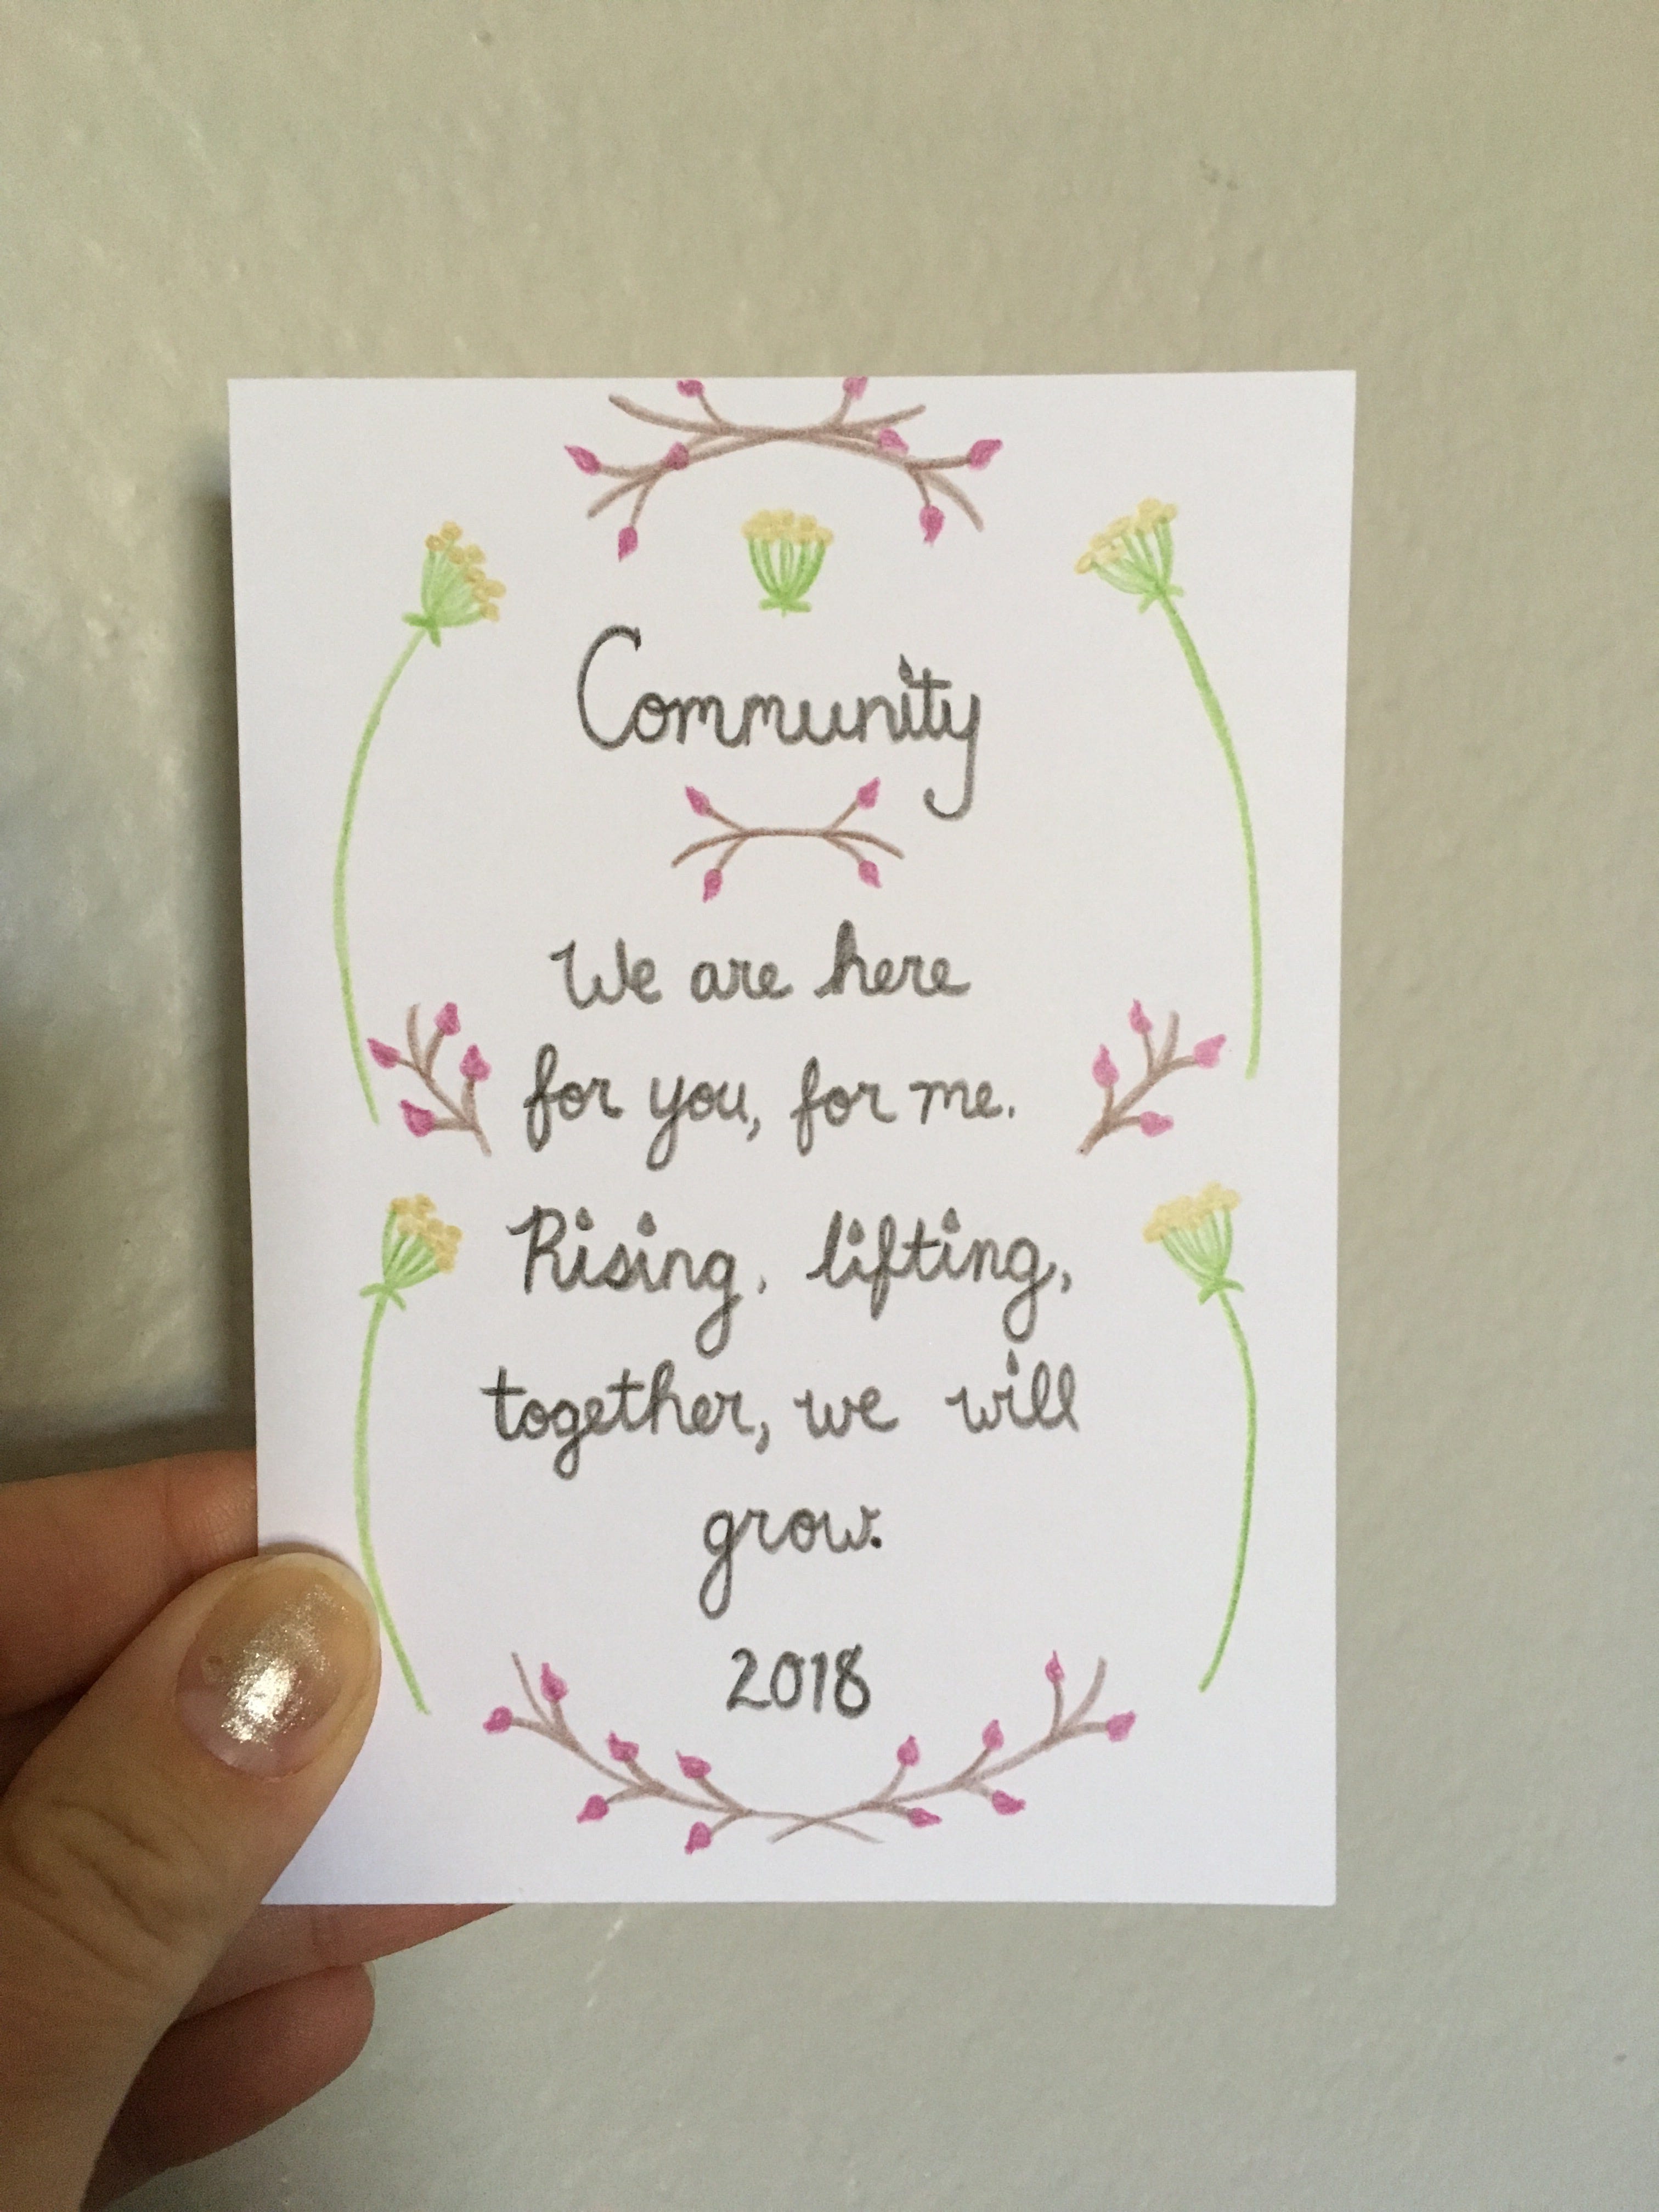 Community
We are here
for you, for me.
Rising, lifting,
together, we will
grow.
2018